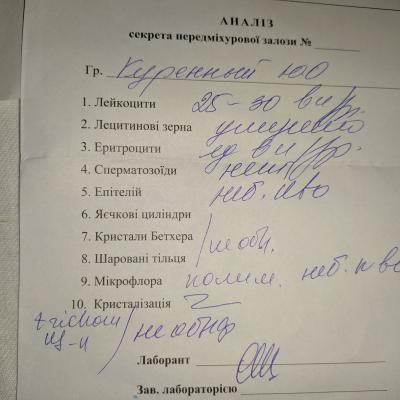 АНАЛІЗ
секрета передміхурової залози №
Гр. Куренный ЮО
1. Лейкоцити 25-30 в п/зр.
2. Лецитинові зерна умеренно
3. Еритроцити ед в п/зр.
4. Сперматозоїди
5. Епітелій неб. к-во
6. Яєчкові циліндри
7. Кристали Бетхера
8. Шаровані тільця
9. Мікрофлора полим. неб. к во
10. Кристалізація
trichom не обнар
Лаборант
Зав. лабораторією